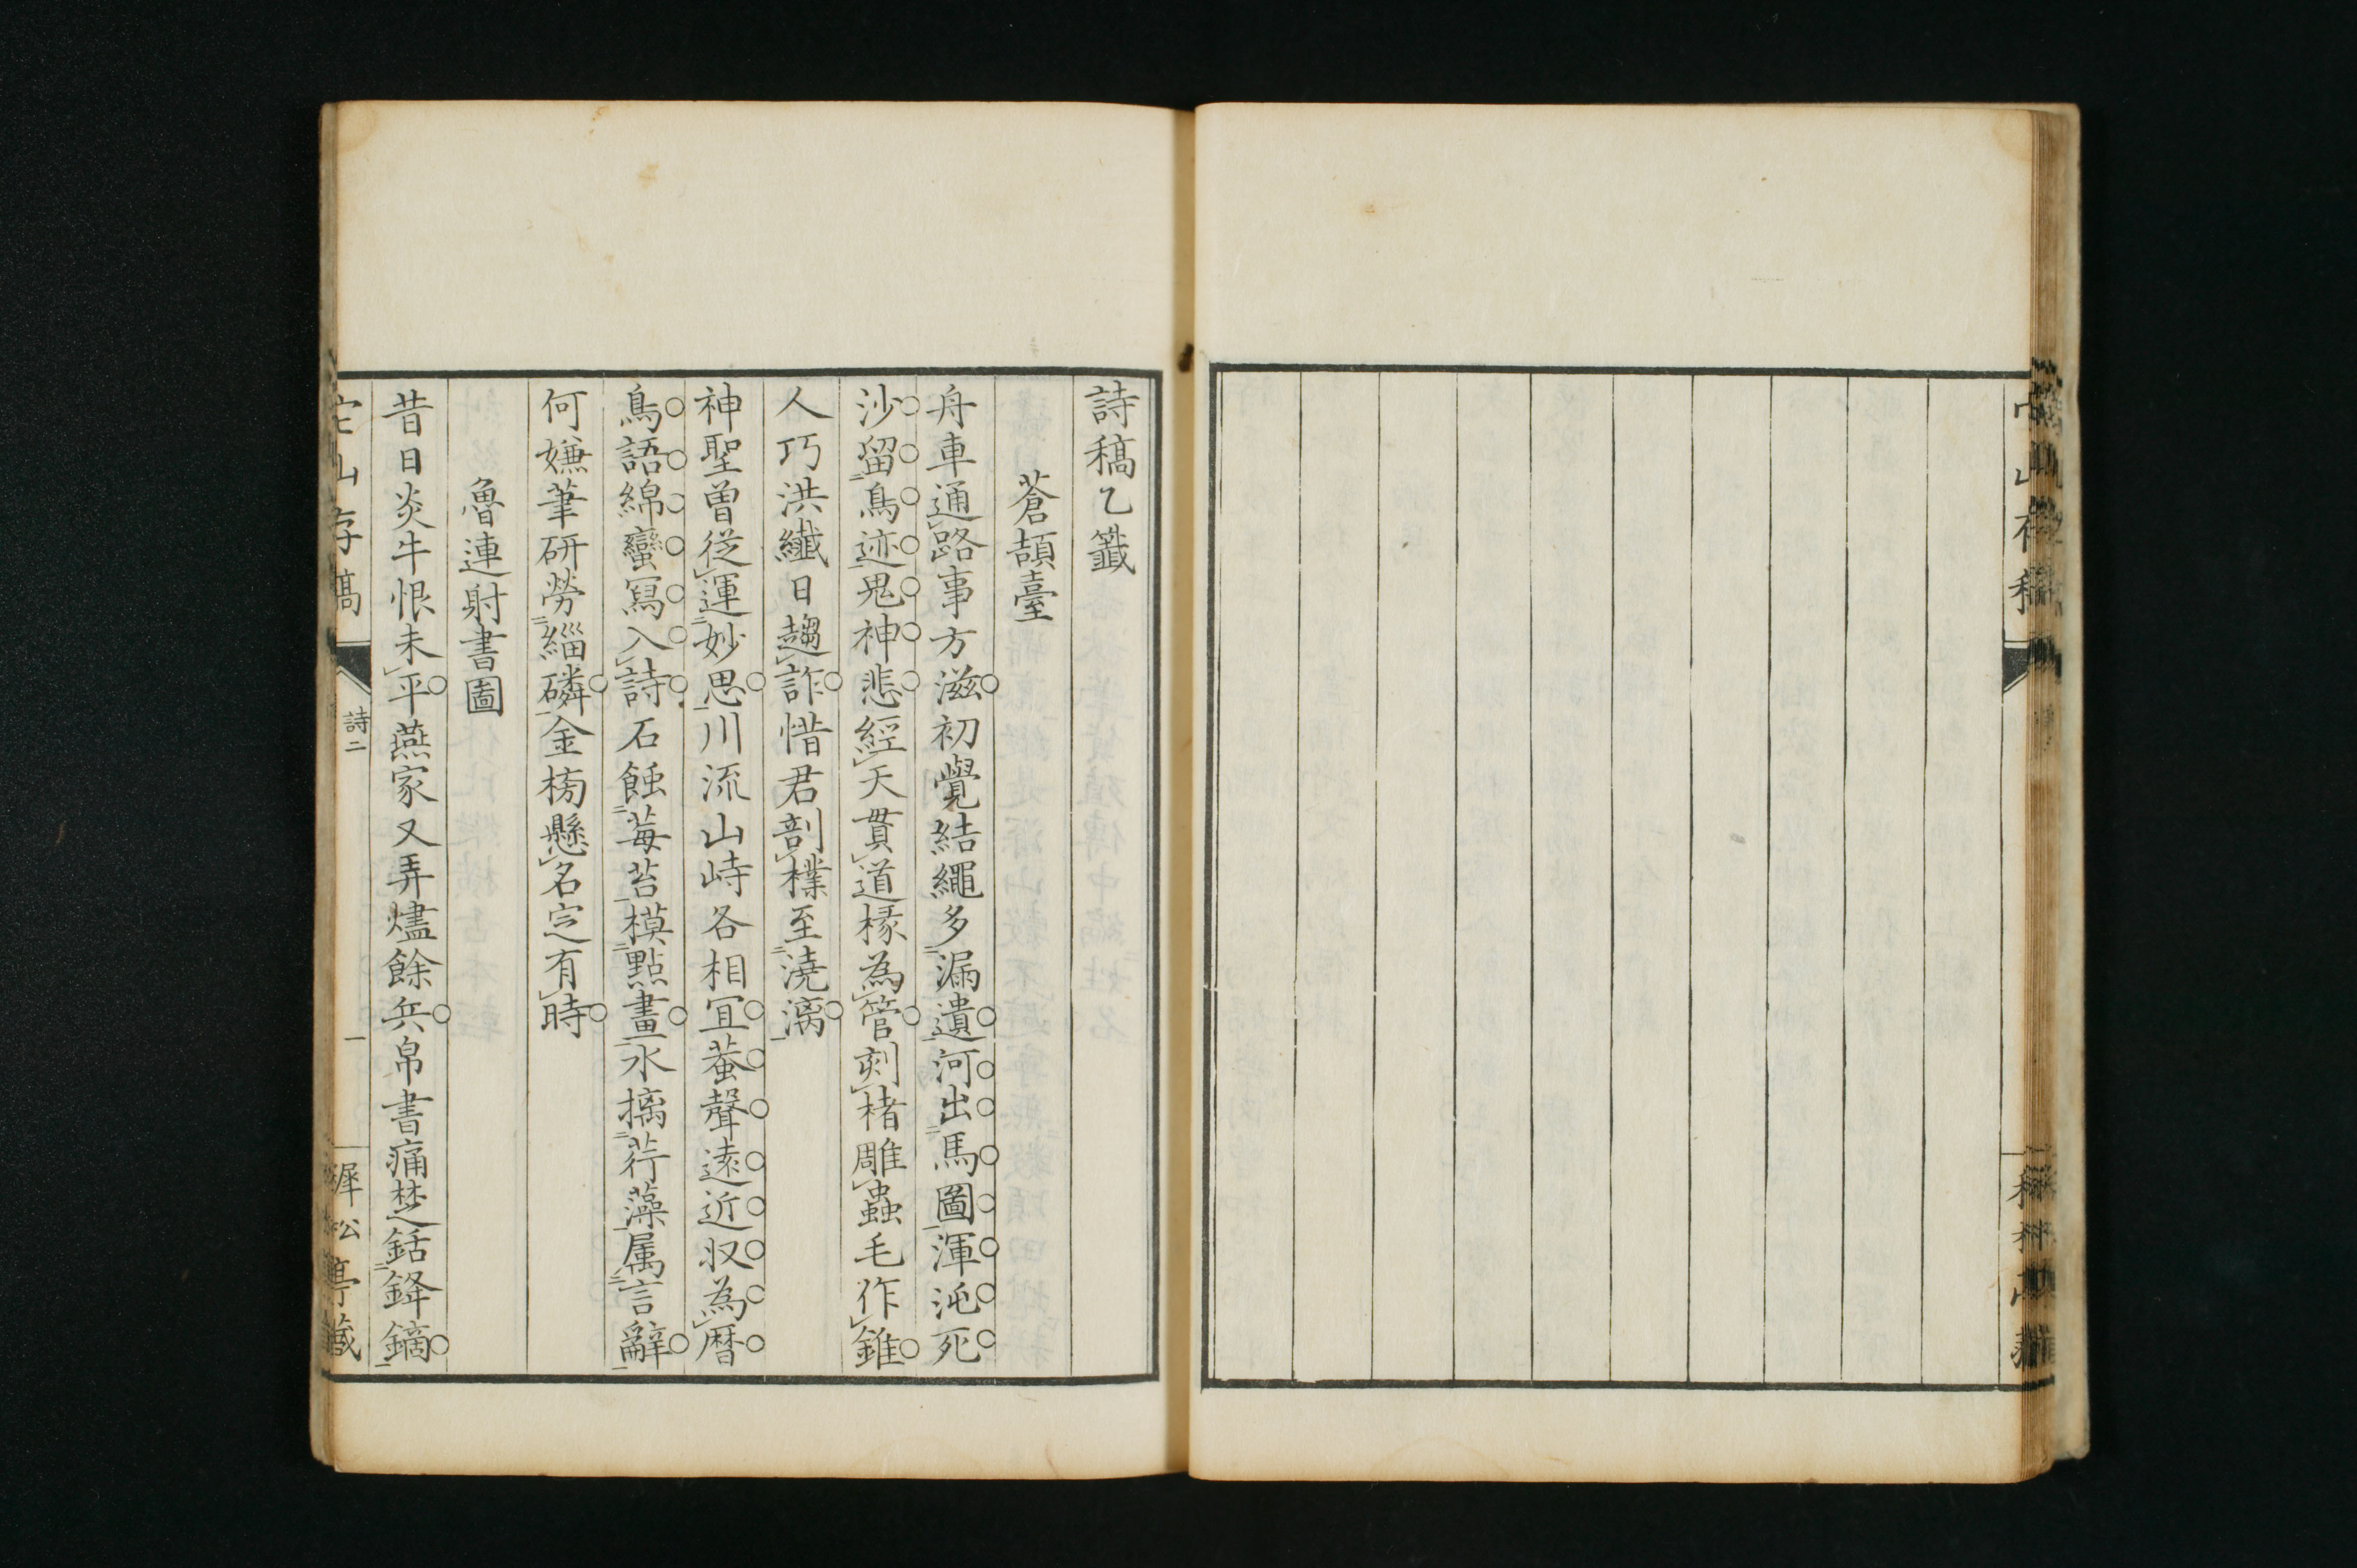 詩稿乙籤
蒼頡臺
舟車通路事方滋初覺結繩多漏遺河出馬圖渾沌死
沙留鳥迹鬼神悲經天貫道椽為管刻楮雕蟲毛作錐
人巧洪纖日趨詐惜君剖樸至澆漓
神聖曽從運妙思川流山峙各相宜蛬聲遠近収為暦
鳥語綿蠻寫入詩石蝕莓苔模點畫水摛荇藻属言辭
何嫌筆研勞緇磷金榜懸名定有時
魯連射書圖
昔日炎牛恨未平燕家又弄燼餘兵帛書痛楚銛鋒鏑
山存稿
詩二
一
犀松亭藏